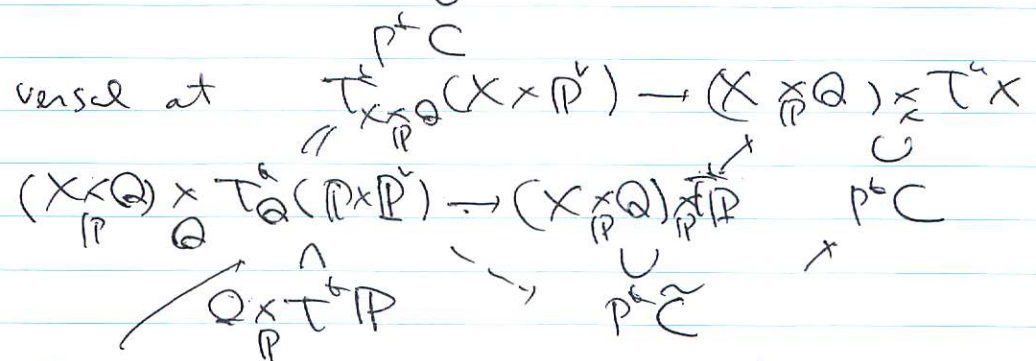 p*C
versal at T*_{X×_P Q}(X × P^∨) → (X ×_P Q) ×_X T*X
∥ ↗ ∪
(X×_P Q) ×_Q T*_Q(P×P^∨) → (X×_P Q)×_P T*P p*C
∩ ∪ ↗
Q×_P T*P p*C̃